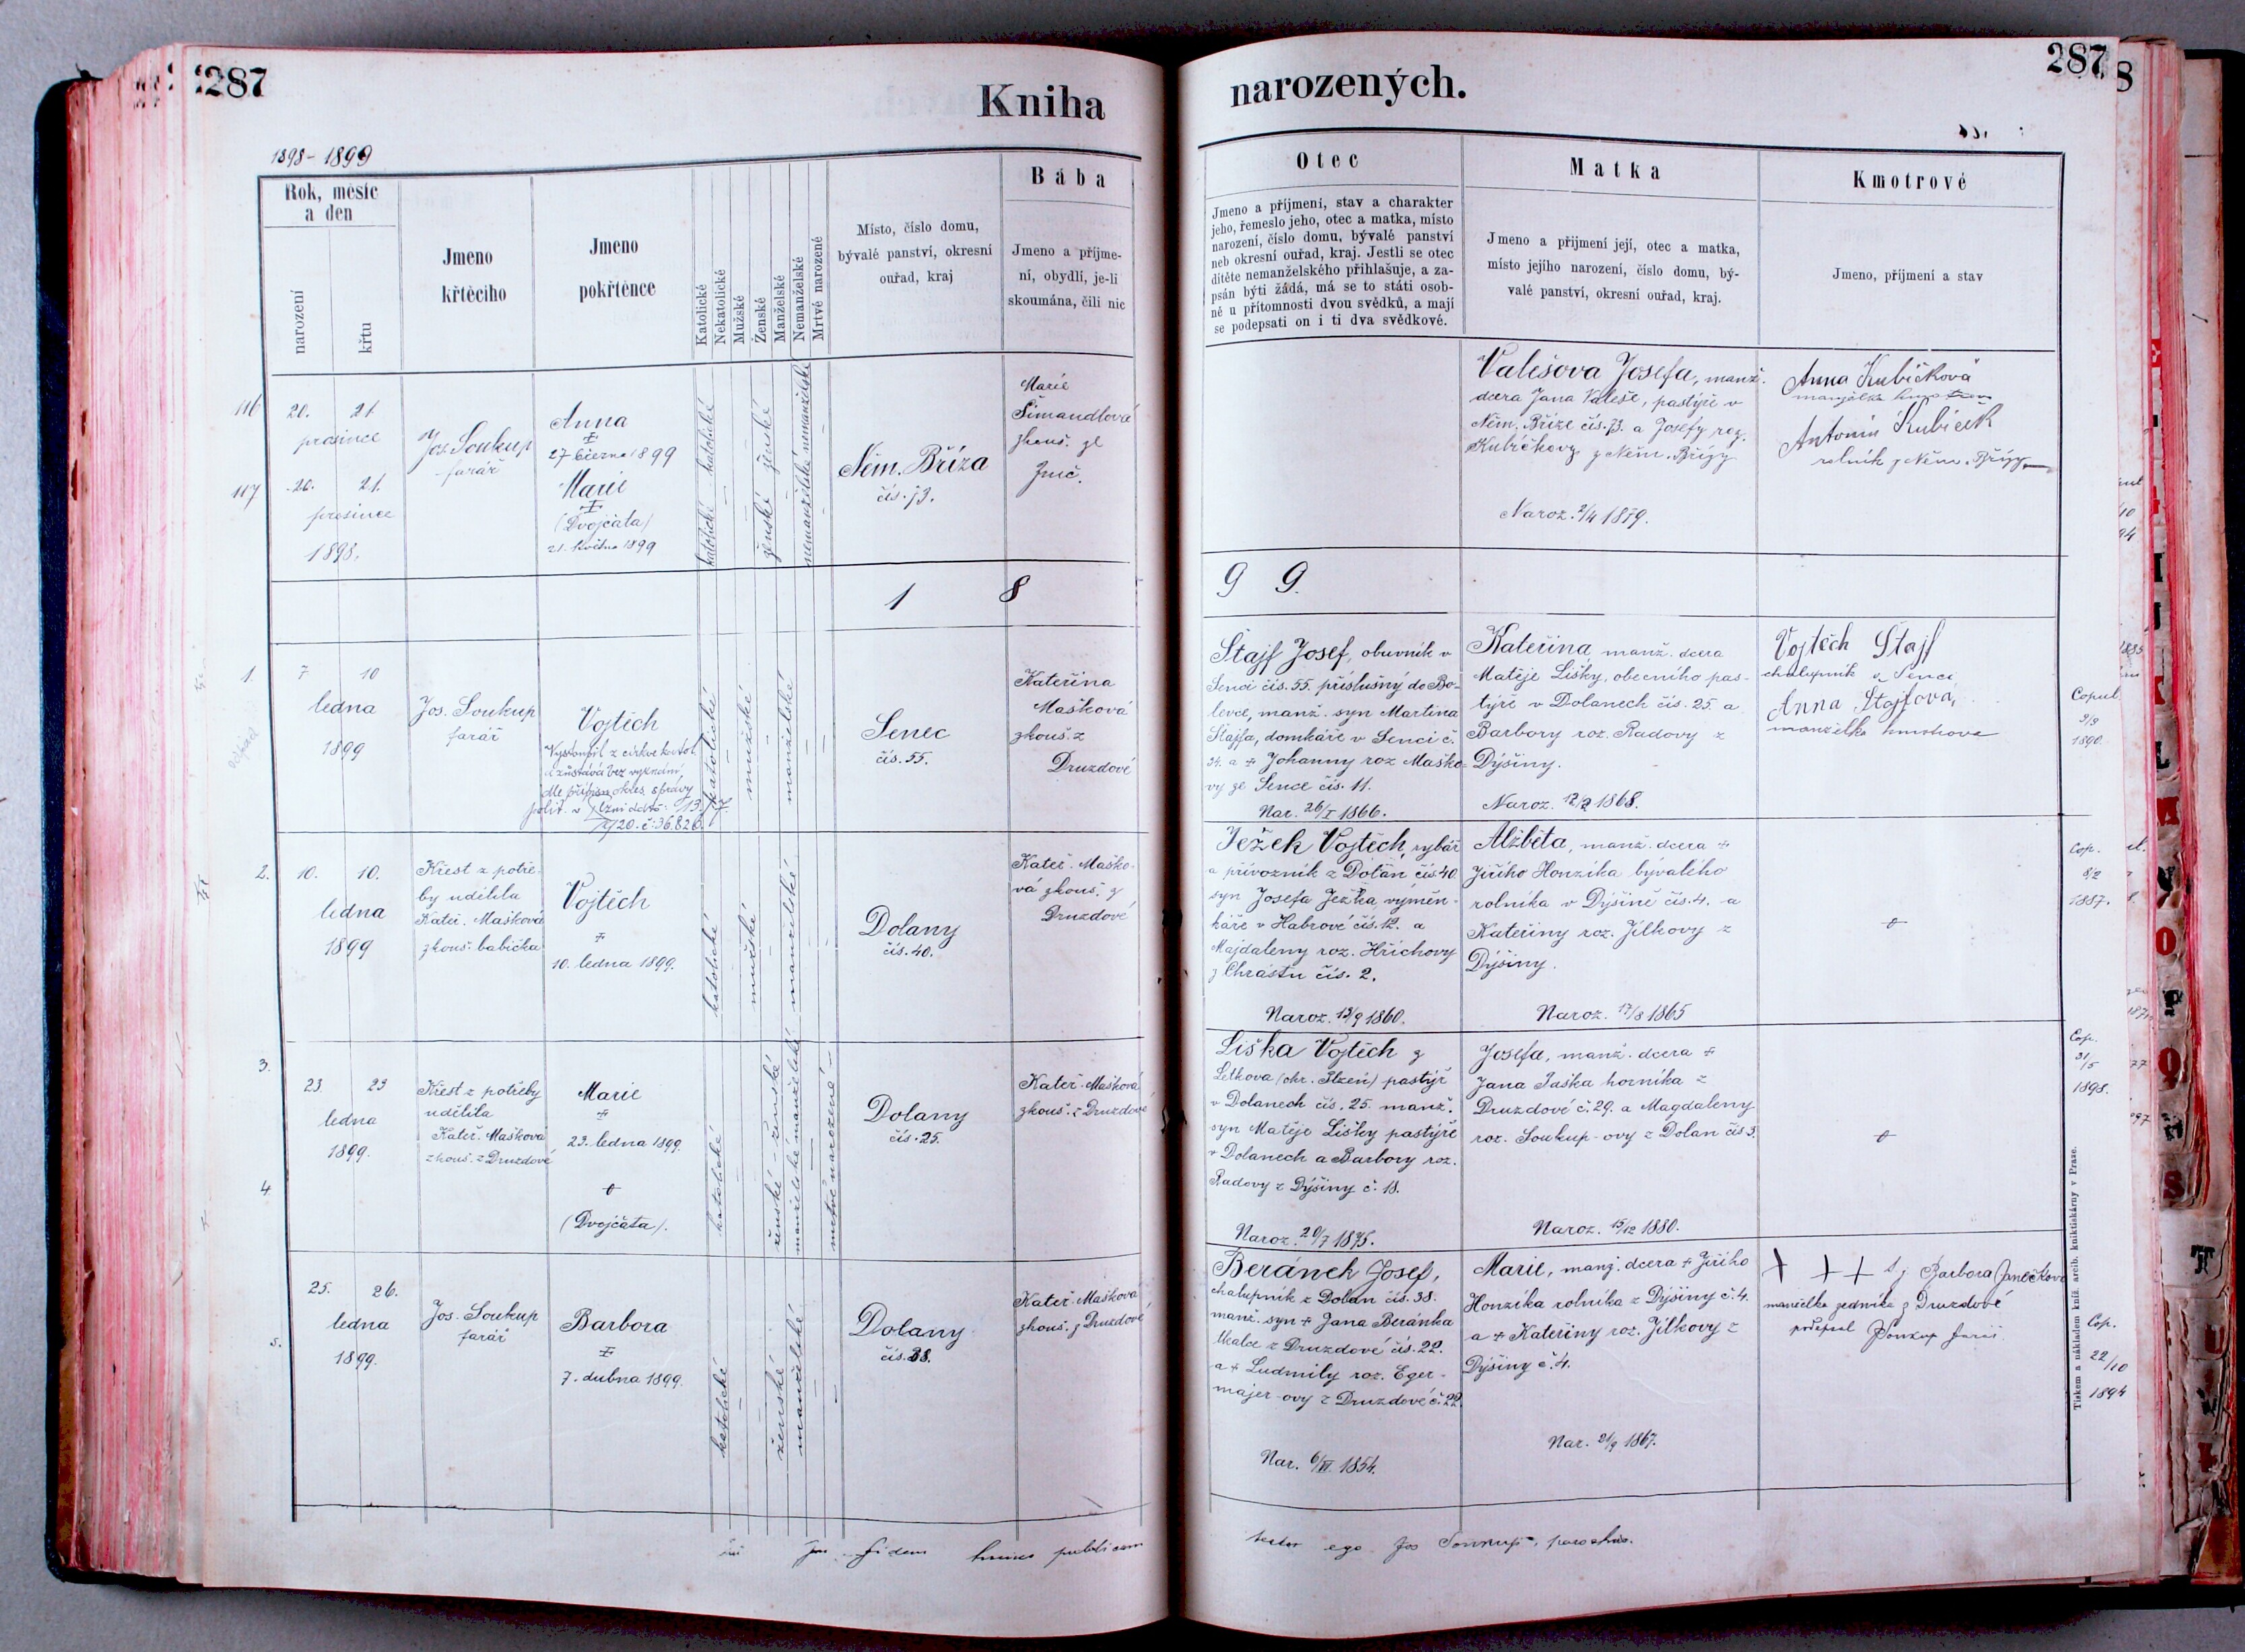 287
Kniha
narozených.
287
8
1898-1899
Rok, měsíc
a den
narození
křtu
Jmeno
křtěcího
Jmeno
pokřtěnce
Katolické
Nekatolické
Mužské
Ženské
Manželské
Nemanželské
Mrtvé narozené
Místo, číslo domu,
bývalé panství, okresní
ouřad, kraj
Bába
Jmeno a příjme-
ní, obydlí, je-li
skoumána, čili nic
Otec
Jmeno a příjmení, stav a charakter
jeho, řemeslo jeho, otec a matka, místo
narození, číslo domu, bývalé panství
neb okresní ouřad, kraj. Jestli se otec
dítěte nemanželského přihlašuje, a za-
psán býti žádá, má se to státi osob-
ně u přítomnosti dvou svědků, a mají
se podepsati on i ti dva svědkové.
Matka
Jmeno a přijmení její, otec a matka,
místo jejího narození, číslo domu, bý-
valé panství, okresní ouřad, kraj.
Kmotrové
Jmeno, příjmení a stav
116
20. 21.
prosince
117
20. 21.
prosince
1898.
Jos. Soukup
farář
Anna
27 března 1899
Marie
(Dvojčata)
21. května 1899
katolické katolické
ženské ženské
nemanželské nemanželské
Něm. Bříza
čís. 73.
Marie
Šimandlová
zkouš. ze
Žruč.
Valešova Josefa, manž.
dcera Jana Valeše, pastýře v
Něm. Bříze čís. 73. a Josefy roz.
Kubíčkovy z Něm. Břízy
Naroz. 2/4 1879.
Anna Kubíčková
manželka
Antonín Kubíček
rolník z Něm. Břízy
1 8
9 9.
1.
7 10
ledna
1899
Jos. Soukup
farář
Vojtěch
Vystoupil z církve katol.
a zůstává bez vyznání,
dle přípisu okres. správy
polit. v Plzni dato: 13.
20. č: 36.826.
katolické
mužské
manželské
Senec
čís. 55.
Kateřina
Mašková
zkouš. z
Druzdové
Štajf Josef, obuvník v
Senci čís. 55. příslušný do Bo-
levce, manž. syn Martina
Štajfa, domkáře v Senci č.
34. a + Johanny roz Maško-
vy ze Sence čís. 11.
Nar. 26/I 1866.
Kateřina manž. dcera
Matěje Lišky, obecního pas-
týře v Dolanech čís. 25. a
Barbory roz. Radovy z
Dýšiny.
Naroz. 1868.
Vojtěch Štajf
chalupník v Senci
Anna Štajfova,
manželka kmotrova
Copul.
9/9
1890.
2.
10. 10.
ledna
1899
Křest z potře-
by udělila
Kateř. Mašková
zkouš. babička
Vojtěch
+
10. ledna 1899.
katolické
mužské
manželské
Dolany
čís. 40.
Kateř. Maško-
vá zkouš. z
Druzdové
Ježek Vojtěch, rybář
a přívozník z Dolan čís. 40
syn Josefa Ježka, výměn-
káře v Habrové čís. 12. a
Majdaleny roz. Hříchovy
z Chrástu čís. 2.
Naroz. 13/9 1860.
Alžběta, manž. dcera +
Jiřího Honzíka bývalého
rolníka v Dýšině čís. 4. a
Kateřiny roz. Jílkovy z
Dýšiny.
Naroz. 17/8 1865
+
Cop.
8/2
1887.
3.
23 23
ledna
1899.
4.
Křest z potřeby
udělila
Kateř. Mašková
zkouš. z Druzdové
Marie
+
23. ledna 1899.
+
(Dvojčata).
katolické
ženské - ženské
manželské manželské
mrtvě narozené
Dolany
čís. 25.
Kateř. Mašková
zkouš. z Druzdové
Liška Vojtěch z
Letkova (okr. Plzeň) pastýř
v Dolanech čís. 25. manž.
syn Matěje Lišky pastýře
v Dolanech a Barbory roz.
Radovy z Dýšiny č. 18.
Naroz. 20/7 1875.
Josefa, manž. dcera +
Jana Paška horníka z
Druzdové č. 29. a Magdaleny
roz. Soukup-ovy z Dolan čís 3.
Naroz. 15/12 1880.
+
Cop.
31/5
1898.
5.
25. 26.
ledna
1899.
Jos. Soukup
farář
Barbora
7. dubna 1899.
katolické
ženské
manželské
Dolany
čís. 38.
Kateř. Mašková
zkouš. z Druzdové
Beránek Josef,
chalupník z Dolan čís. 38.
manž. syn + Jana Beránka
tkalce z Druzdové čís. 22.
a + Ludmily roz. Eger-
majer-ovy z Druzdové č. 22.
Nar. 6/VI. 1854.
Marie, manž. dcera + Jiřího
Honzíka rolníka z Dýšiny č. 4.
a + Kateřiny roz. Jílkovy z
Dýšiny č. 4.
Nar. 21/9 1867.
+ + + Barbora Janečkova
manželka zedníka z Druzdové
podepsal Soukup farář
Cop.
22/10
1894
Tiskem a nákladem kníž. arcib. knihtiskárny v Praze.
fidem hunc publicam
testor ego Jos Soukup, parochus.